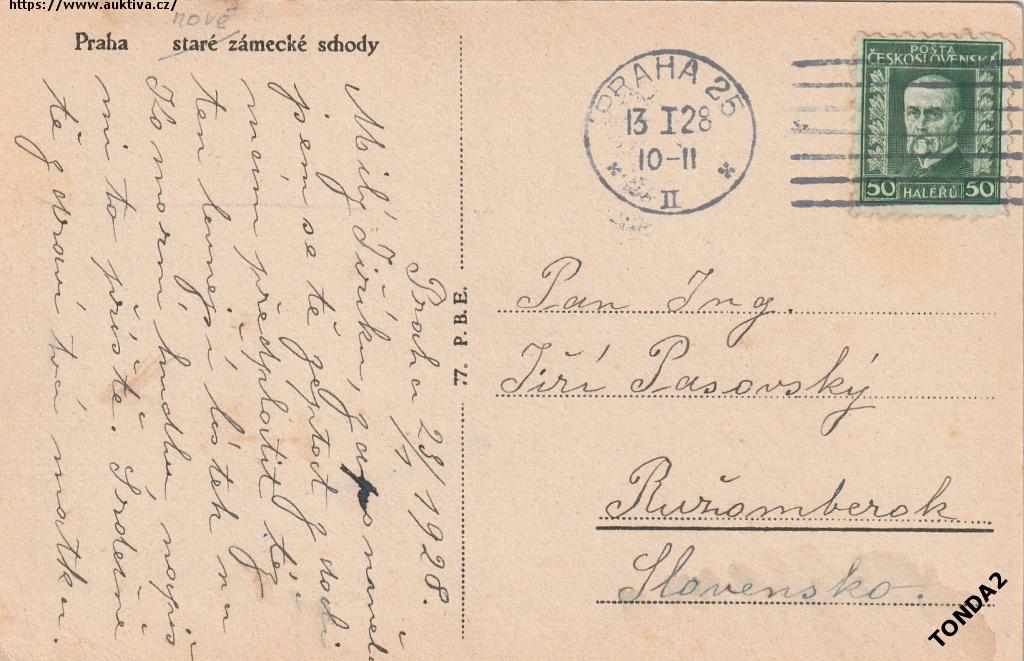 https://www.auktiva.cz/
nové
Praha staré zámecké schody
PRAHA 25
13 I 28
10-11
II
POŠTA
ČESKOSLOVENSKÁ
50 HALÉŘŮ 50
Praha 23/1 1928.
Milý Jiříku, zapomněli
jsem se tě zeptat zdali
mám předplatit též
ten levnější lístek na
Komorní hudbu napiš
mi to příště. Srdečně
tě zdraví tvá matka.
77. P. B. E.
Pan Ing.
Jiří Pasovský
Ružomberok
Slovensko.
TONDA2